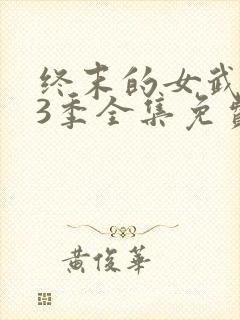 终末的女武
3季全集免费
黄俊华